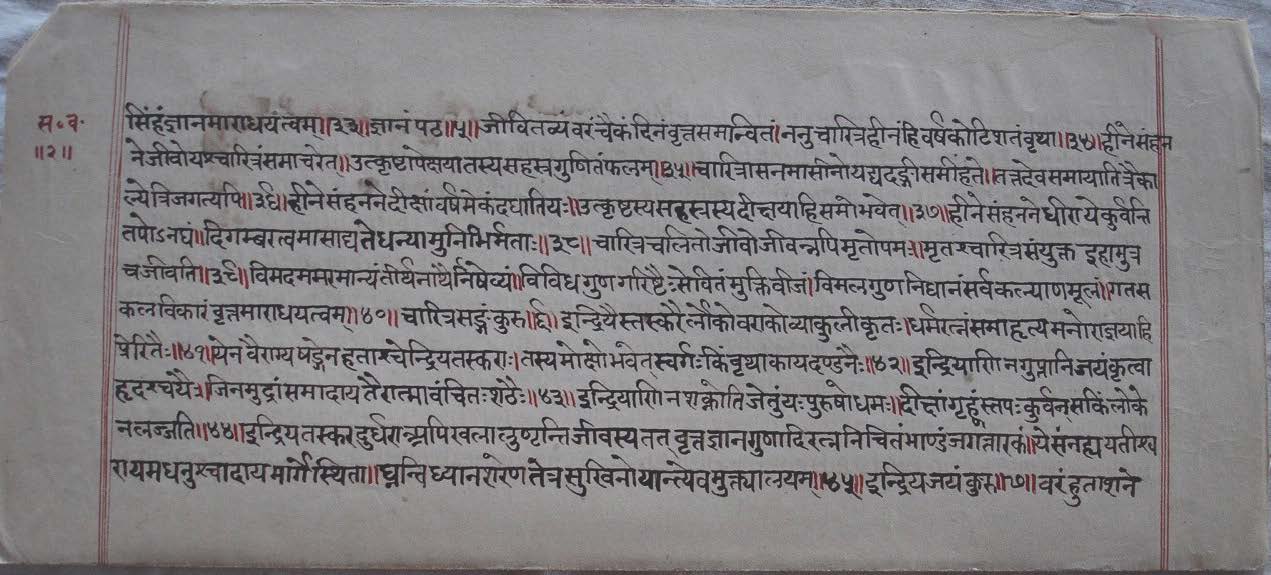 स॰व॰
॥२॥
सिंहंज्ञानमाराधयंत्वम्॥३३॥ज्ञानं पठ॥५॥जीवितव्यं वरं चैकं दिनं वृत्तसमन्वितं।ननु चारित्रहीनं हि वर्षकोटिशतं वृथा॥३४॥हीनेसंहन
नेजीवोयश्चारित्रंसमाचरेत्॥उत्कृष्टापेक्षयातस्यसहस्त्रगुणितंफलम्॥३५॥चारित्रासनमासीनोयद्यदङ्गीसमीहते॥तत्तदेवसमायातित्रैका
ल्येत्रिजगत्यपि॥३६॥हीनेसंहननेदीक्षांवर्षमेकंदधातियः॥उत्कृष्टस्यसहस्त्रस्यदीक्षयाहिसमोभवेत्॥३७॥हीनेसंहननेधीरायेकुर्वन्ति
तपोऽनघं॥दिगम्बरत्वमासाद्यतेधन्यामुनिभिर्मताः॥३८॥चारित्रचलितोजीवोजीवन्नपिमृतोपमः॥मृतश्चारित्रसंयुक्त इहामुत्र
चजीवति॥३९॥विमदममरमान्यंतीर्थनांथैर्निषेव्यं॥विविधगुणगरिष्टैःसेवितंमुक्तिवीजं॥विमलगुणनिधानंसर्वकल्याणमूलं॥गतस
कलविकारं वृत्तमाराधयत्वम्॥४०॥चारित्रसङ्गं कुरु॥६॥इन्द्रियैस्तस्करैर्लोकोवराकोव्याकुलीकृतः॥धर्मरत्नंसमाहृत्यमनोराज्ञयाहि
प्रेरितैः॥४१॥येनवैराग्यषड्गेनहताश्चेन्द्रियतस्कराः।तस्यमोक्षोभवेत्स्वर्गःकिंवृथाकायदण्डनैः॥४२॥इन्द्रियाणिनगुप्तानिजयंकृत्वा
हृदश्चयैः॥जिनमुद्रांसमादायतैरात्मावंचितःशठैः॥४३॥इन्द्रियाणिनशक्नोतिजेतुंयःपुरुषोधमः॥दीक्षांगृह्णंस्तपःकुर्वनसकिंलोके
नलज्जति॥४४॥इन्द्रियतस्करदुर्धरान्नपिखलालुण्ठन्तिजीवस्यतत् वृत्तज्ञानगुणादिरत्ननिचितंभाण्डंजगत्तारकं॥येसंनह्ययतीश्व
रायमधनुश्चादायमार्गेस्थिता॥घ्नन्तिध्यानशरेणतेत्रसुखिनोयान्त्येवमुक्त्यालयम्॥४५॥इन्द्रियजयंकुरु॥७॥वरंहुताशने